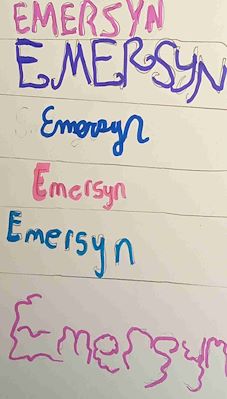 EMERSYN
EMERSYN
Emersyn
Emersyn
Emersyn
Emersyn